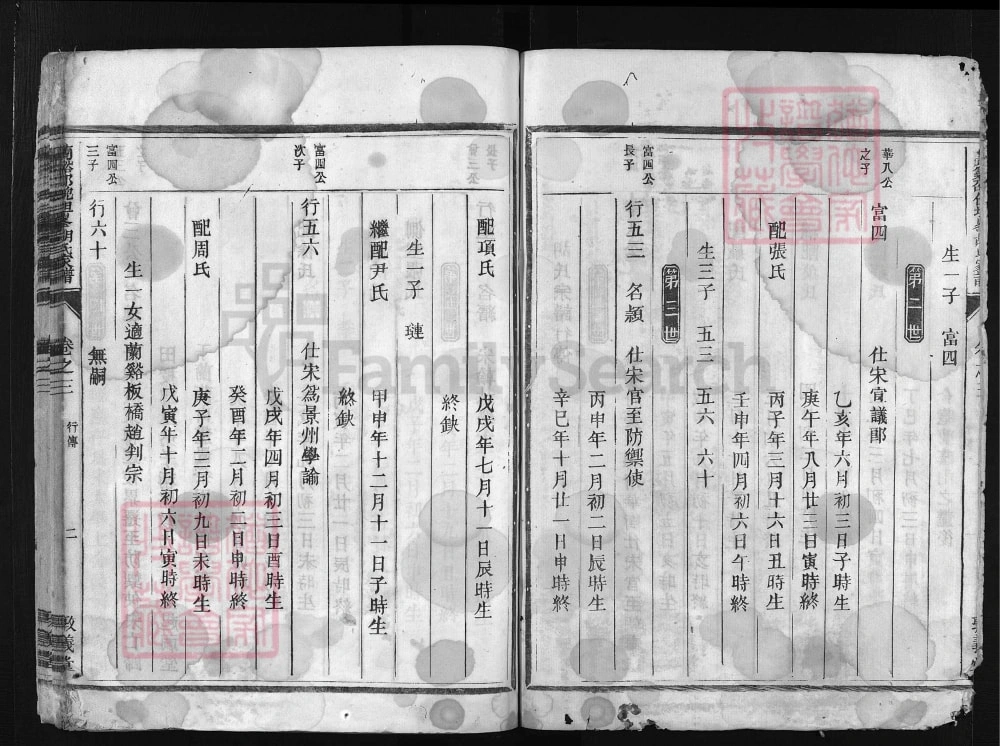 生一子 富四
第二世
華八公之子
富四 仕宋宣議郎
乙亥年六月初三日子時生
庚午年八月廿三日寅時終
配張氏 丙子年三月十六日丑時生
壬申年四月初六日午時終
生三子 五三 五六 六十
第三世
富四公長子
行五三 名顯 仕宋官至防禦使
丙申年二月初二日辰時生
辛巳年十月廿一日申時終
配項氏 戊戌年七月十一日辰時生
終缺
生一子 璉
繼配尹氏 甲申年十二月十一日子時生
終缺
富四公次子
行五六 仕宋為景州學諭
戊戌年四月初三日酉時生
癸酉年二月初二日申時終
配周氏 庚子年三月初九日未時生
戊寅年十月初六日寅時終
生一女適蘭谿板橋趙判宗
富四公三子
行六十 無嗣
卷之三 行傳 二 敦義堂
FamilySearch